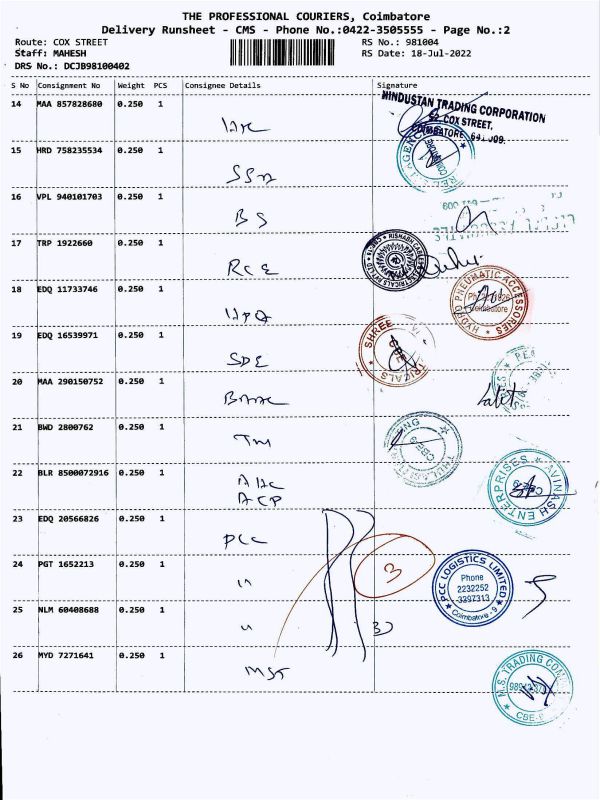 THE PROFESSIONAL COURIERS, Coimbatore
Delivery Runsheet - CMS - Phone No.:0422-3505555 - Page No.:2
Route: COX STREET RS No.: 981004
Staff: MAHESH RS Date: 18-Jul-2022
DRS No.: DCJB98100402
S No Consignment No Weight PCS Consignee Details Signature
14 MAA 857828680 0.250 1
HINDUSTAN TRADING CORPORATION
COX STREET,
COIMBATORE
15 HRD 758235534 0.250 1
16 VPL 940101703 0.250 1
BS
17 TRP 1922660 0.250 1
RCE
18 EDQ 11733746 0.250 1
HYDRO PNEUMATIC ACCESSORIES
Coimbatore
19 EDQ 16539971 0.250 1
SDE
SHREE
CBE
20 MAA 290150752 0.250 1
Lalit
21 BWD 2800762 0.250 1
TM
CBE-9
22 BLR 8500072916 0.250 1
ACP
AVINASH ENTERPRISES
23 EDQ 20566826 0.250 1
PCC
24 PGT 1652213 0.250 1
3
PCC LOGISTICS LIMITED
Phone
2232252
3397313
Coimbatore - 9
25 NLM 60408688 0.250 1
26 MYD 7271641 0.250 1
M.S. TRADING